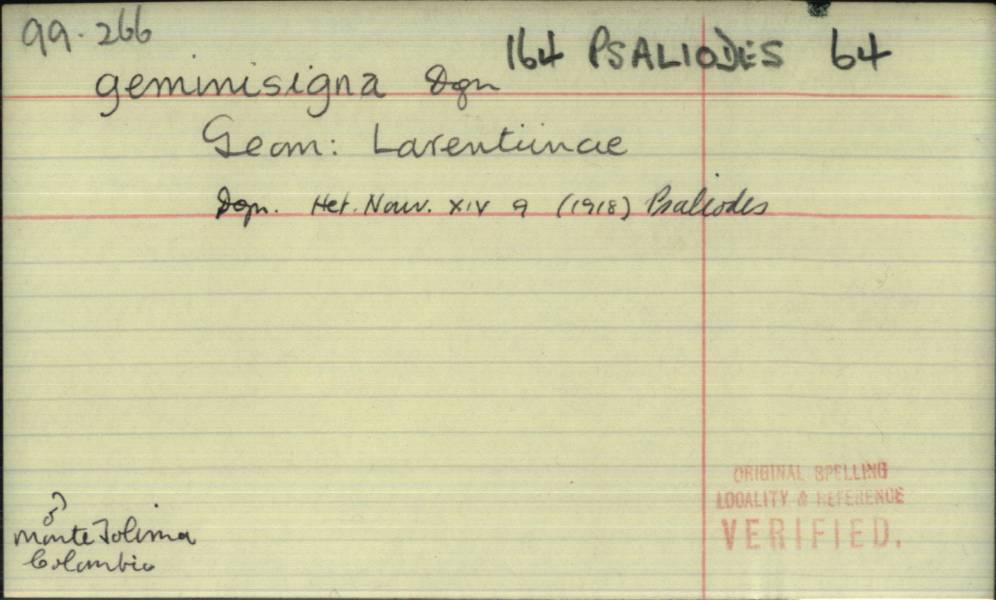 99.266
164 PSALIODES 64
geminisigna Dgn
Geom: Larentiinae
Dgn. Het. Nouv. XIV 9 (1918) Psaliodes
ORIGINAL SPELLING
LOCALITY & REFERENCE
VERIFIED.
♂
Monte Tolima
Colombia